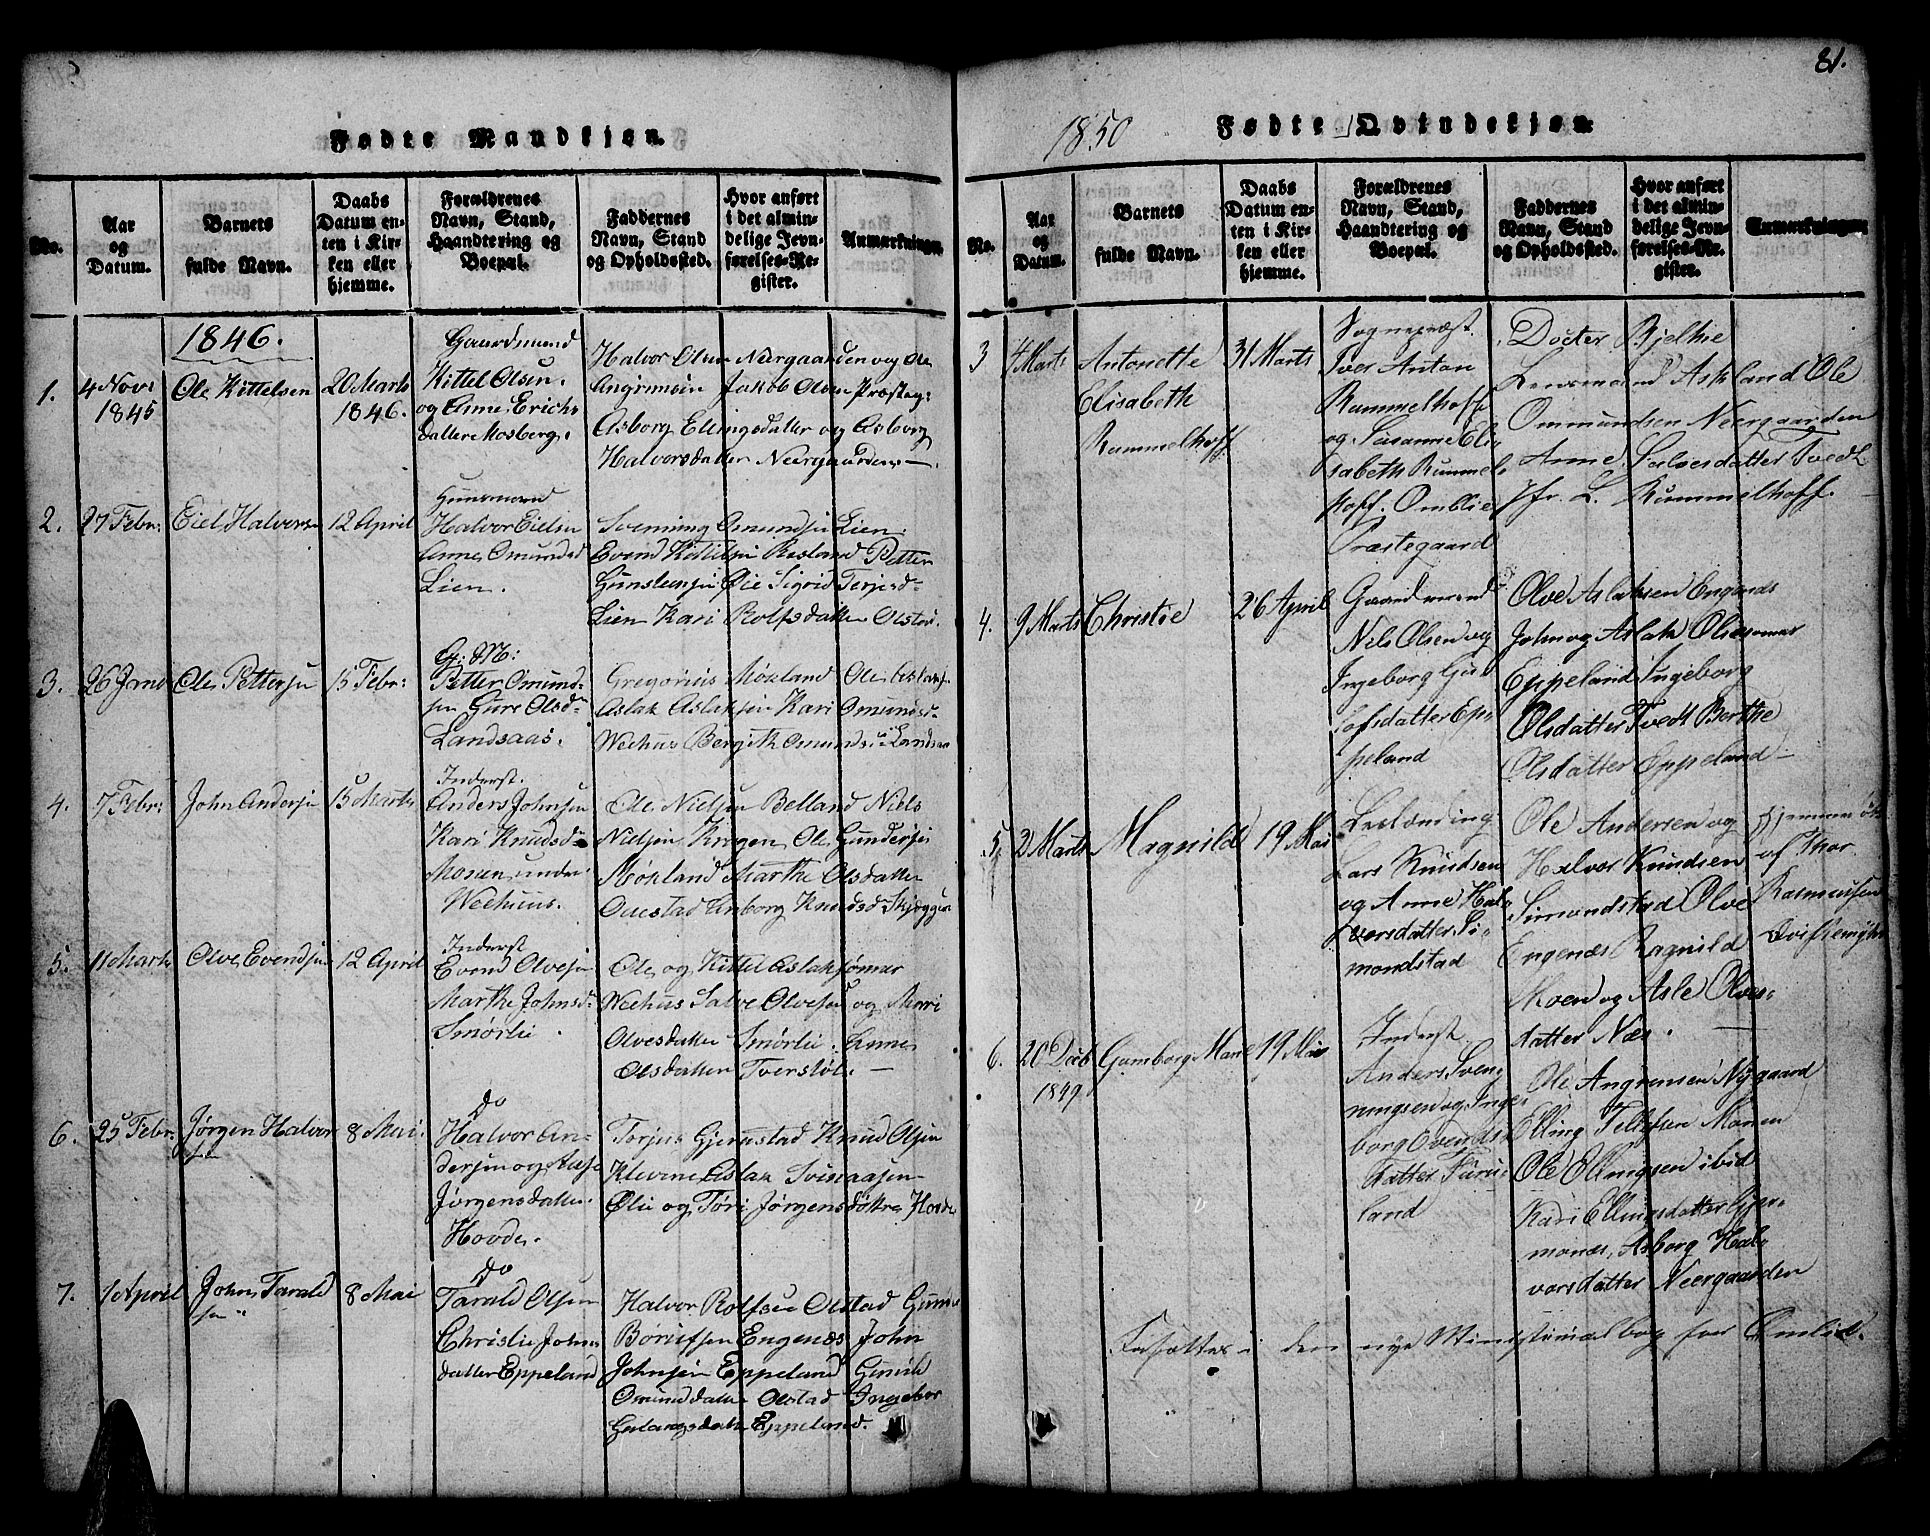 Fødte Mandkjøn.
No.
Aar og Datum.
Barnets fulde Navn.
Daabs Datum enten i Kirken eller hjemme.
Forældrenes Navn, Stand, Haandtering og Boepæl.
Faddernes Navn, Stand og Opholdssted.
Hvor anført i det almindelige Jevnførelses-Register.
Anmærkninger.
1846.
1. 4 Nov: 1845
Ole Kittelsen
20 Marts 1846.
Gaardmand
Kittel Olsen
og Anne Erichs
datter Mosberg.
Halvor Olsen Neergaarden og Ole
Angrimsen Jakob Olsen Præsteg:
Asborg Ellingsdatter og Asborg
Halvorsdatter Neergaarden —
2. 27 Febr:
Eiel Halvors
12 April
Huusmand
Halvor Eielsen
Anne Omundsd
Lien.
Svenning Omundsen Lien.
Evend Kittilsen Risland Petter
Gunsteinsen Øie Sigrid Terjesd
Lien Kari Rolfsdatter Olstad.
3. 26 Janr
Ole Pettersen
15 Febr:
G: M:
Petter Omund
sen Guro Olsd
Landsaas.
Gregorius Møxland Ole Aslaksen
Aslak Aslaksen Kari Omundsd
Weehus Bergith Omunds. Landsaas
4. 7 Febr:
John Andersen
15 Marts
Inderst.
Anders Johnsen
Kari Knudsd
Moseen under
Weehuus.
Ole Nielsen Belland Niels
Nielsen Krogen Ole Gundersen
Møxland Marthe Olsdatter
Ouestad Anborg Knudsd Skjeggen
5. 11 Marts
Olve Evendsen
12 April
Inderst
Evend Olvesen
Marthe Johnsd
Smørlie.
Ole og Kittel Aslaksønner
Weehus Salve Olvesen og Mari
Olvesdatter Smørlie. Anne
Olsdatter Tverstøl. —
6. 25 Febr:
Jørgen Halvor
8 Mai
do
Halvor An
dersen og Aase
Jørgensdatter
Hovde.
Torjus Gjerustad Knud Olsen
Klevene Aslak Svenaasen
Olie og Tøri Jørgensdøttre Hovde
7. 1 April
John Tarald
sen
8 Mai
do
Tarald Olsen
Christie Johns
datter Eppeland
Halvor Rolfsen Olstad Gunne
Børiufsen Engenæs John
Johnsen Eppeland Gunild
Omunddatter Olstad Ingebor
datter Eppeland.
81.
1850
Fødte Qvindekjøn.
No.
Aar og Datum.
Barnets fulde Navn.
Daabs Datum enten i Kirken eller hjemme.
Forældrenes Navn, Stand, Haandtering og Boepæl.
Faddernes Navn, Stand og Opholdssted.
Hvor anført i det almindelige Jevnførelses-Register.
Anmærkninger.
3 4 Marts
Antonette
Elisabeth
Rummelhoff
31 Marts
Sognepræst
Iver Anton
Rummelhoff
og Susanne Eli
sabeth Rummel
hoff. Omblie
Præstegaard
Docter Bjelke
Lensmand Askland Ole
Ommundsen Neergaarden
Anne Salvesdatter Tvedt
Jfr. L. Rummelhoff. —
4. 9 Marts
Christie
26 April
Gaardmand
Nils Olsen og
Ingeborg Gu
lofsdatter Ep
peland
Olve Aslaksen Engenæs
John og Aslak Olesønner
Eppeland Ingeborg
Olsdatter Tvedt Berthe
Olsdatter Eppeland —
5 2 Marts
Magnild
19 Mai
Leilænding
Lars Knudsen
og Anne Hal
vorsdatter Si
mondstad
Ole Andersen og
Halvor Knudsen
Simondstad Olve
Engenæs Ragnild
Moen og Asle Olves
datter Næs. —
Hjemmedøbt
af Thor
Rasmussen
6. 20 Dcb 1849
Gamborg Marie
19 Mai
Inderst
Anders Sven
ningsen og Inge
borg Evends
datter Furue
land
Ole Angrensen Nygaard
Elling Tellefsen Monen
Ole Ellingsen ibid
Kari Ellingsdatter Gjer
monæs, Asborg Hal
vorsdatter Neergaarden
Fortsættes i den nye Ministerialbog for Omlid.